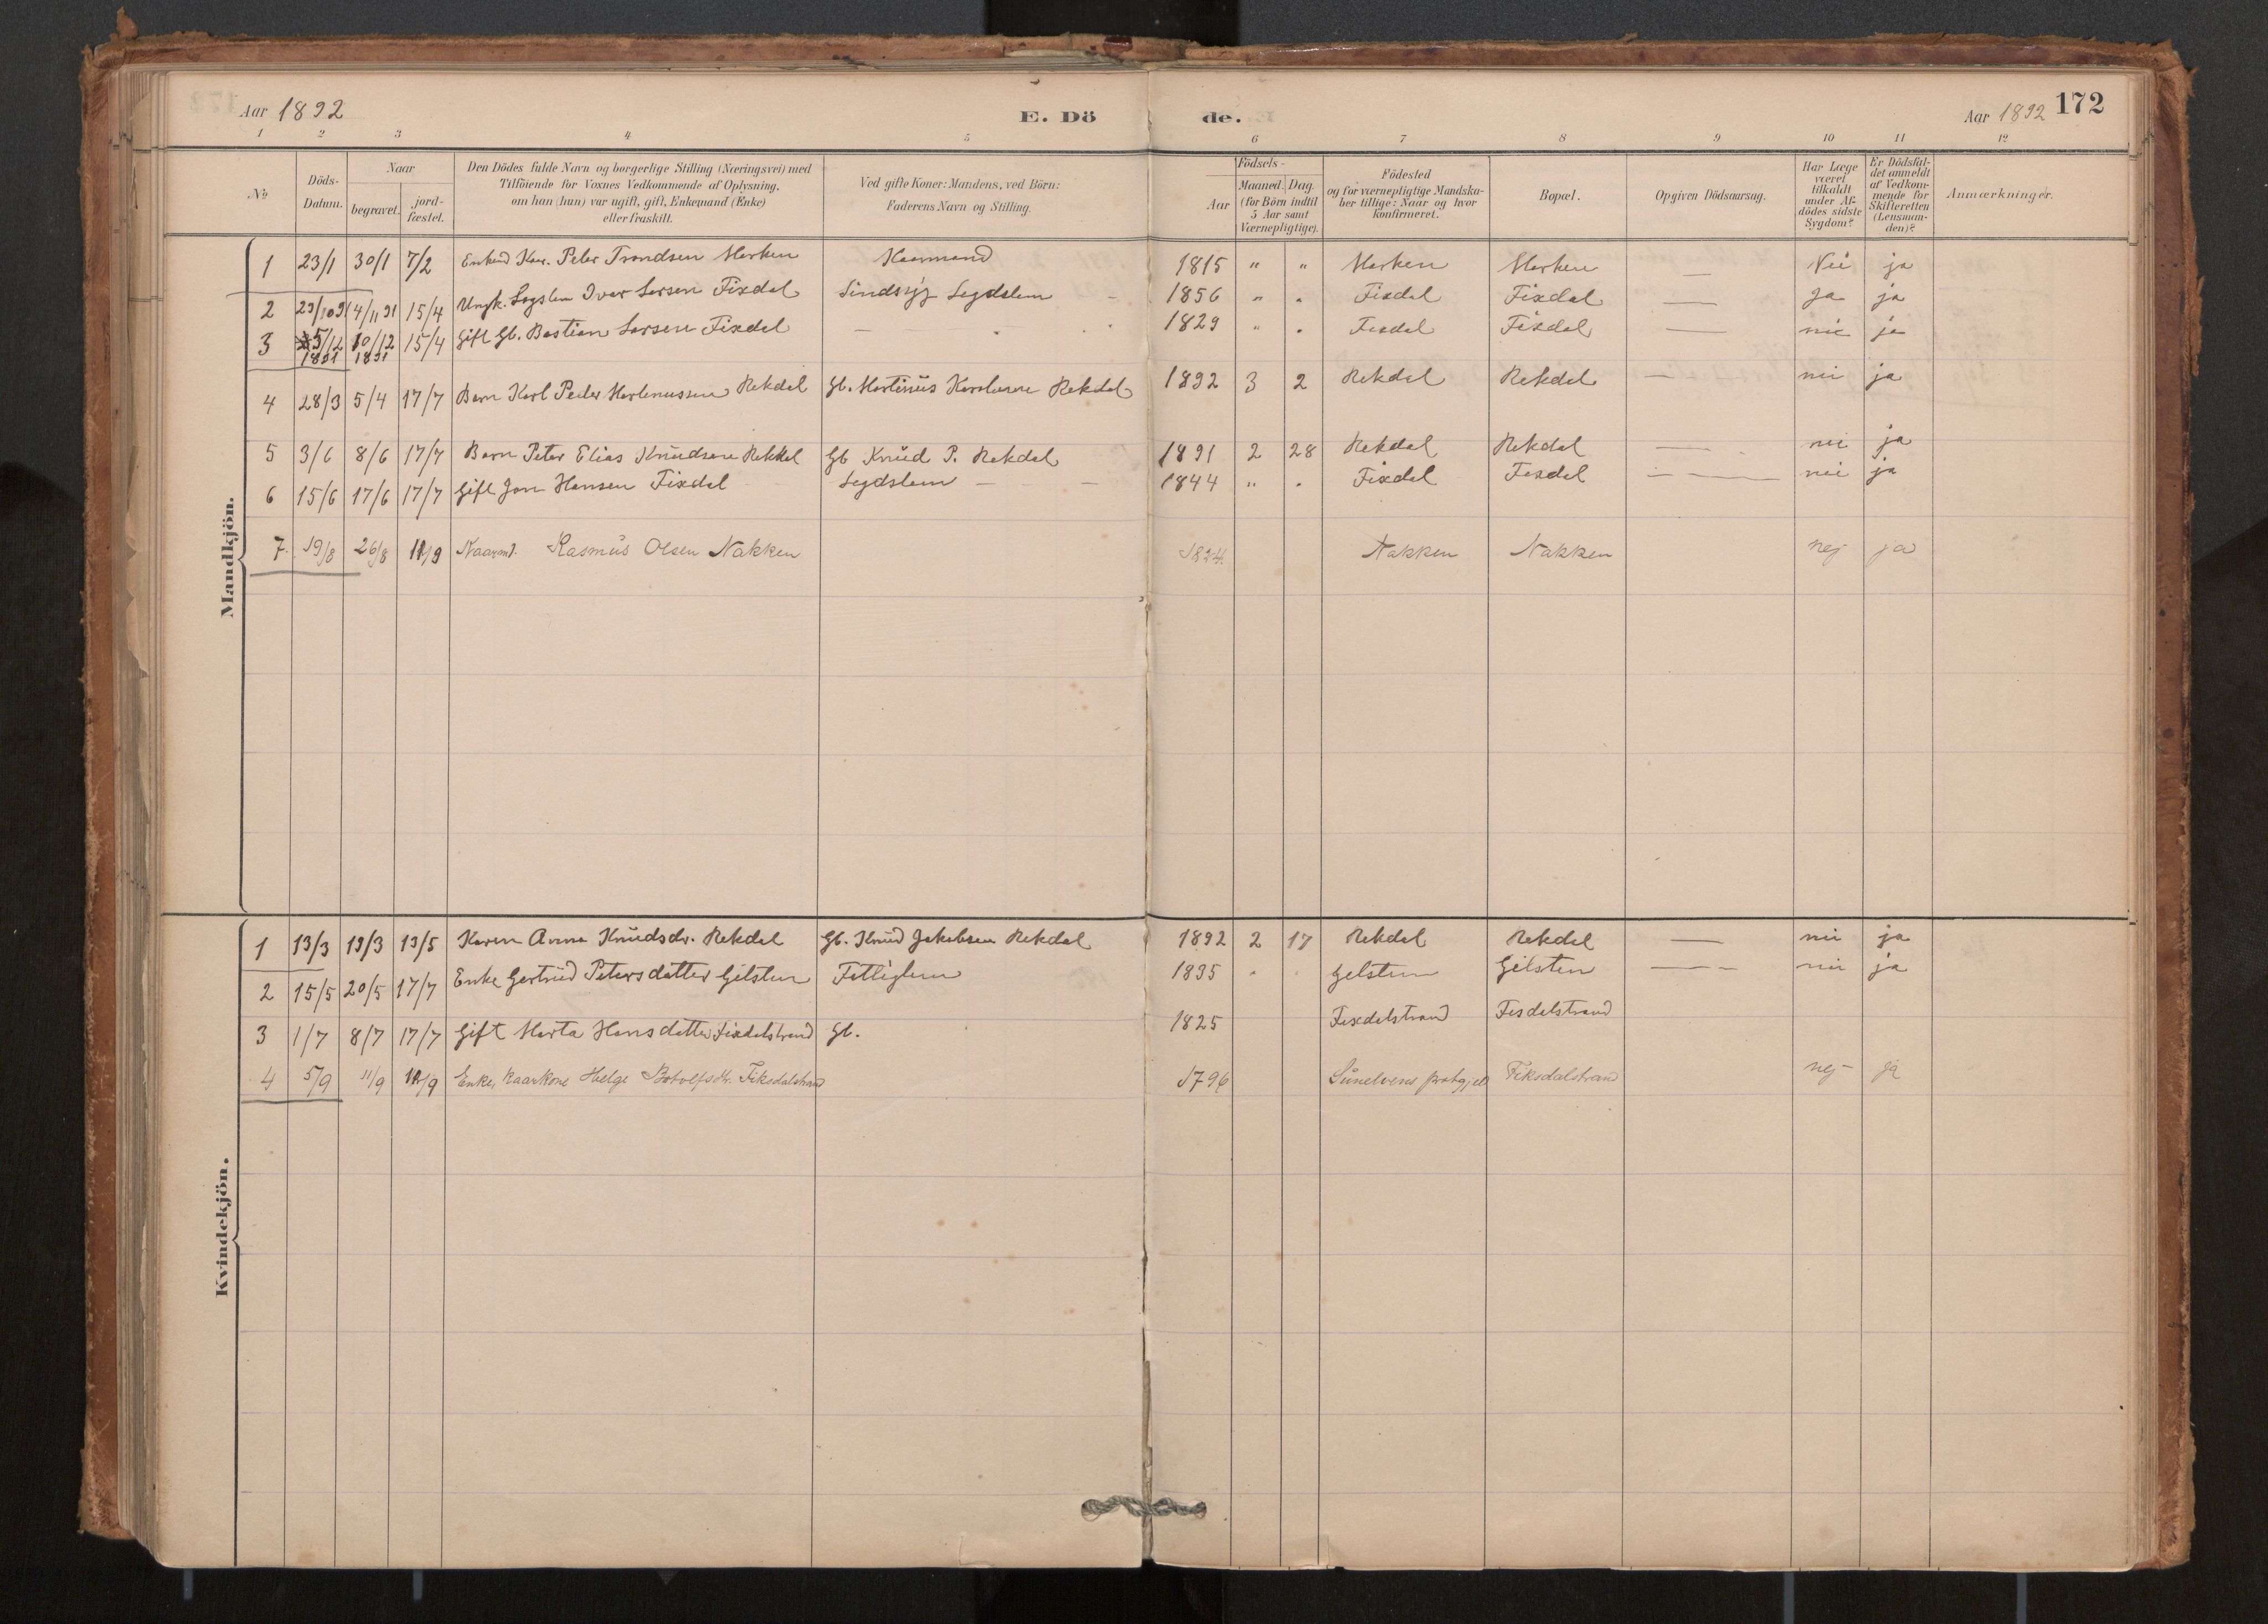 Aar 1892
E. Dö
de.
Aar 1892
172
1 2 3 4 5 6 7 8 9 10 11 12
No
Döds-
Datum.
Naar
begravet.
jord-
fæstet.
Den Dödes fulde Navn og borgerlige Stilling (Næringsvei) med
Tilföiende for Voxnes Vedkommende af Oplysning,
om han (hun) var ugift, gift, Enkemand (Enke)
eller fraskilt.
Ved gifte Koner: Mandens, ved Börn:
Faderens Navn og Stilling.
Födsels-
Aar
Maaned. Dag.
(for Börn indtil
5 Aar samt
Værnepligtige).
Födested
og for værnepligtige Mandska-
ber tillige: Naar og hvor
konfirmeret.
Bopæl.
Opgiven Dödsaarsag.
Har Læge
været
tilkaldt
under Af-
dödes sidste
Sygdom?
Er Dödsfal-
det anmeldt
af Vedkom-
mende for
Skifteretten
(Lensman-
den)?
Anmærkninger.
Mandkjön.
1 23/1 30/1 7/2 Peter Trondsen Morken Kaarmand 1815 " " Morken Morken — Nei ja
2 29/10 91 4/11 91 15/4 Ungk. Ivar Larsen Fixdal Sindsyg Legdslem 1856 " " Fixdal Fixdal — Ja ja
3 5/12 1891 10/12 1891 15/4 Gift Gb. Bastian Larsen Fixdal — 1829 " " Fixdal Fixdal — nei ja
4 28/3 5/4 17/7 Barn Karl Peder Martinussen Rekdal Gb. Martinus Rekdal 1892 3 2 Rekdal Rekdal — nei ja
5 3/6 8/6 17/7 Barn Peter Elias Knudsen Rekdal Gb Knud P. Rekdal 1891 2 28 Rekdal Rekdal — nei ja
6 15/6 17/6 17/7 Gift Jon Hansen Fixdal Legdslem — — 1844 " " Fixdal Fixdal — nei ja
7. 19/8 26/8 11/9 Kaarmd. Rasmus Olsen Nakken 1824. Nakken Nakken nej ja
Kvindekjön.
1 13/3 19/3 13/5 Karen Anna Knudsdr. Rekdal Gb. Knud Jakobsen Rekdal 1892 2 17 Rekdal Rekdal — nei ja
2 15/5 20/5 17/7 Enke Gertrud Petersdatter Gilsten Fattiglem 1835 " " Gelsten Gilsten — nei ja
3 1/7 8/7 17/7 Gift Marta Hansdatter Fixdalstrand Gb. 1825 Fixdalstrand Fixdalstrand
4 5/9 11/9 11/9 Enke, Kaarkone Helge Botolfsdtr. Fiksdalstrand 1796 Sunelvens prstgjeld Fiksdalstrand nej ja